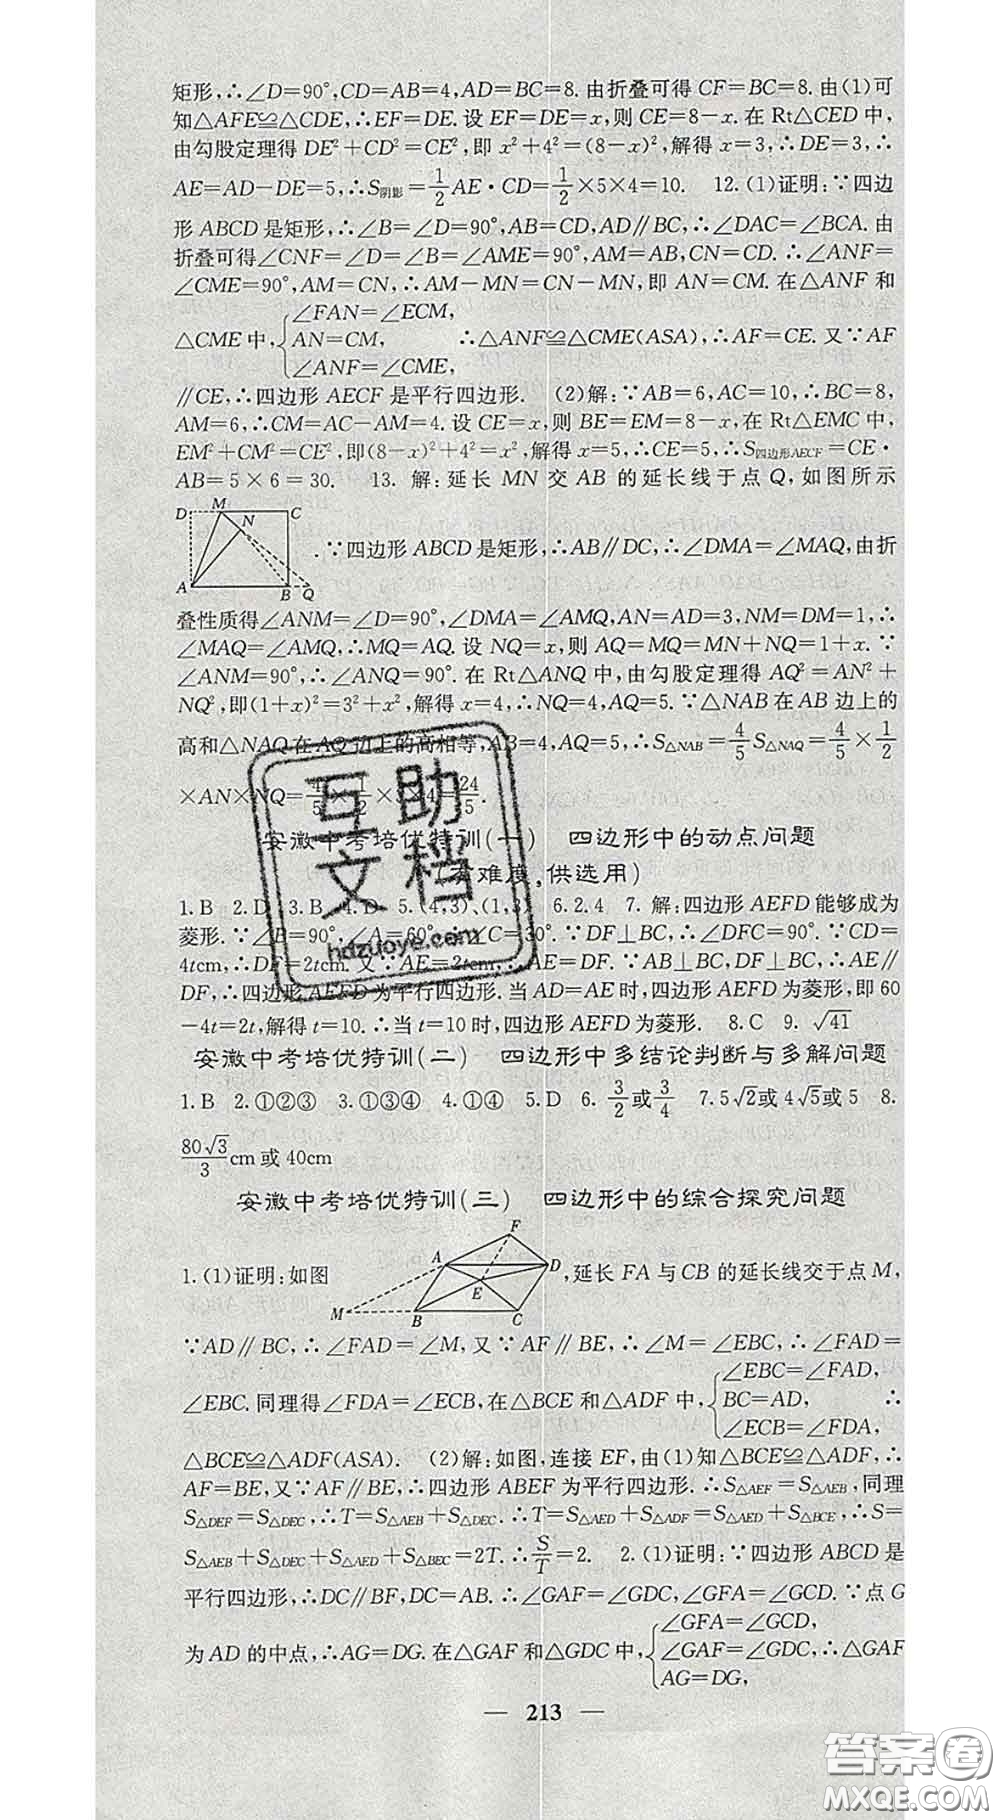 矩形,∴∠D=90°,CD=AB=4,AD=BC=8.由折叠可得 CF=BC=8.由(1)可
知△AFE≌△CDE,∴EF=DE.设 EF=DE=x,则 CE=8-x.在 Rt△CED 中,
由勾股定理得 DE²+CD²=CE²,即 x²+4²=(8-x)²,解得 x=3,∴DE=3,∴
AE=AD-DE=5,∴S阴影=1/2 AE·CD=1/2×5×4=10. 12.(1)证明:∵四边
形 ABCD 是矩形,∴∠B=∠D=90°,AB=CD,AD∥BC,∴∠DAC=∠BCA.由
折叠可得∠CNF=∠D=∠B=∠AME=90°,AM=AB,CN=CD.∴∠ANF=
∠CME=90°,AM=CN,∴AM-MN=CN-MN,即 AN=CM.在△ANF 和
△CME 中,{∠FAN=∠ECM,
AN=CM,
∠ANF=∠CME, ∴△ANF≌△CME(ASA),∴AF=CE.又∵AF
∥CE,∴四边形 AECF 是平行四边形. (2)解:∵AB=6,AC=10,∴BC=8,
AM=6,∴CM=AC-AM=4.设 CE=x,则 BE=EM=8-x,在 Rt△EMC 中,
EM²+CM²=CE²,即(8-x)²+4²=x²,解得 x=5,∴CE=5,∴S四边形AECF=CE·
AB=5×6=30. 13. 解:延长 MN 交 AB 的延长线于点 Q,如图所示
D M C
N
A B Q
.∵四边形 ABCD 是矩形,∴AB∥DC,∴∠DMA=∠MAQ,由折
叠性质得∠ANM=∠D=90°,∠DMA=∠AMQ,AN=AD=3,NM=DM=1,∴
∠MAQ=∠AMQ,∴MQ=AQ.设 NQ=x,则 AQ=MQ=MN+NQ=1+x.∵
∠ANM=90°,∴∠ANQ=90°.在 Rt△ANQ 中,由勾股定理得 AQ²=AN²+
NQ²,即(1+x)²=3²+x²,解得 x=4,∴NQ=4,AQ=5.∵△NAB 在 AB 边上的
高和△NAQ 在 AQ 边上的高相等,AB=4,AQ=5,∴S△NAB=4/5 S△NAQ=4/5×1/2
×AN×NQ=4/5×1/2×3×4=24/5.
安徽中考培优特训(一) 四边形中的动点问题
(有难度,供选用)
1.B 2.D 3.B 4.D 5.(4,3)、(1,3) 6.2.4 7. 解:四边形 AEFD 能够成为
菱形.∵∠B=90°,∠A=60°,∴∠C=30°.∵DF⊥BC,∴∠DFC=90°.∵CD=
4tcm,∴DF=2tcm.又∵AE=2tcm,∴AE=DF.∵AB⊥BC,DF⊥BC,∴AE∥
DF,∴四边形 AEFD 为平行四边形.当 AD=AE 时,四边形 AEFD 为菱形,即 60
-4t=2t,解得 t=10.∴当 t=10 时,四边形 AEFD 为菱形. 8.C 9. √41
安徽中考培优特训(二) 四边形中多结论判断与多解问题
1.B 2.①②③ 3.①③④ 4.①④ 5.D 6. 3/2或3/4 7.5√2或 4√5或 5 8.
80√3/3 cm 或 40cm
安徽中考培优特训(三) 四边形中的综合探究问题
1.(1)证明:如图
F
A D
E
M B C
,延长 FA 与 CB 的延长线交于点 M,
∵AD∥BC,∴∠FAD=∠M,又∵AF∥BE,∴∠M=∠EBC,∴∠FAD=
∠EBC.同理得∠FDA=∠ECB,在△BCE 和△ADF 中,{∠EBC=∠FAD,
BC=AD,
∠ECB=∠FDA, ∴
△BCE≌△ADF(ASA). (2)解:如图,连接 EF,由(1)知△BCE≌△ADF,∴
AF=BE,又∵AF∥BE,∴四边形 ABEF 为平行四边形.∴S△AEF=S△AEB,同理
S△DEF=S△DEC,∴T=S△AEB+S△DEC.∴T=S△AED+S△ADF=S△AED+S△BCE,∴S=
S△AEB+S△DEC+S△AED+S△BEC=2T.∴S/T=2. 2.(1)证明:∵四边形 ABCD 是
平行四边形,∴DC∥BF,DC=AB.∴∠GAF=∠GDC,∠GFA=∠GCD.∵点 G
为 AD 的中点,∴AG=DG.在△GAF 和△GDC 中,{∠GFA=∠GCD,
∠GAF=∠GDC,∴△GAF
AG=DG,
— 213 —
互助
文档
hdzuoye.com
答案圈
MXQE.COM